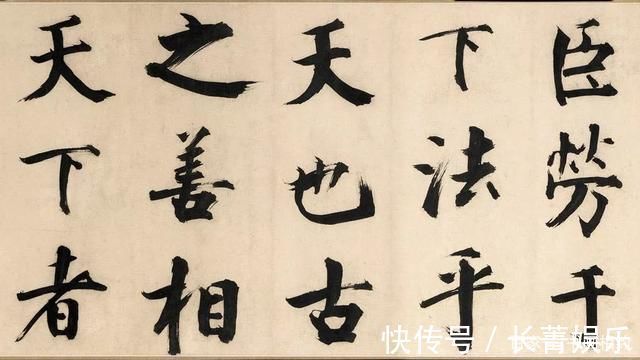 臣勞于
下法乎
天也古
之善相
天下者
快传号 / 长菁娱乐